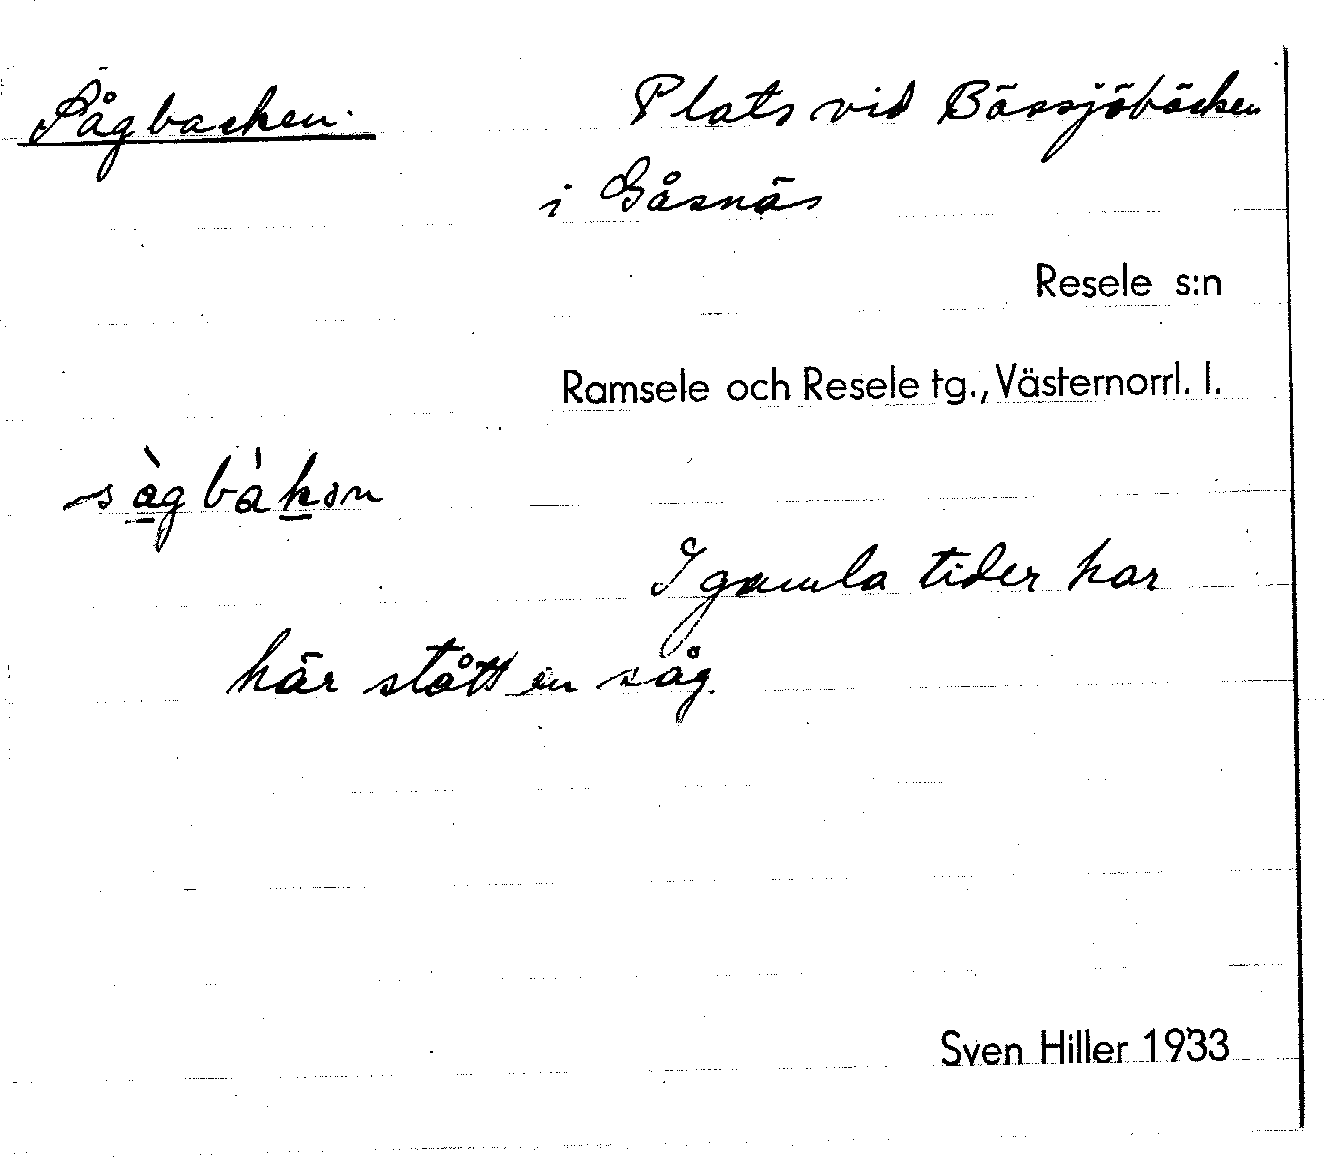 Sågbacken. Plats vid Bössjöbäcken
i Gåsnäs
Resele s:n
Ramsele och Resele tg., Västernorrl. l.
sàgbàkən
I gamla tider har
här stått en såg.
Sven Hiller 1933